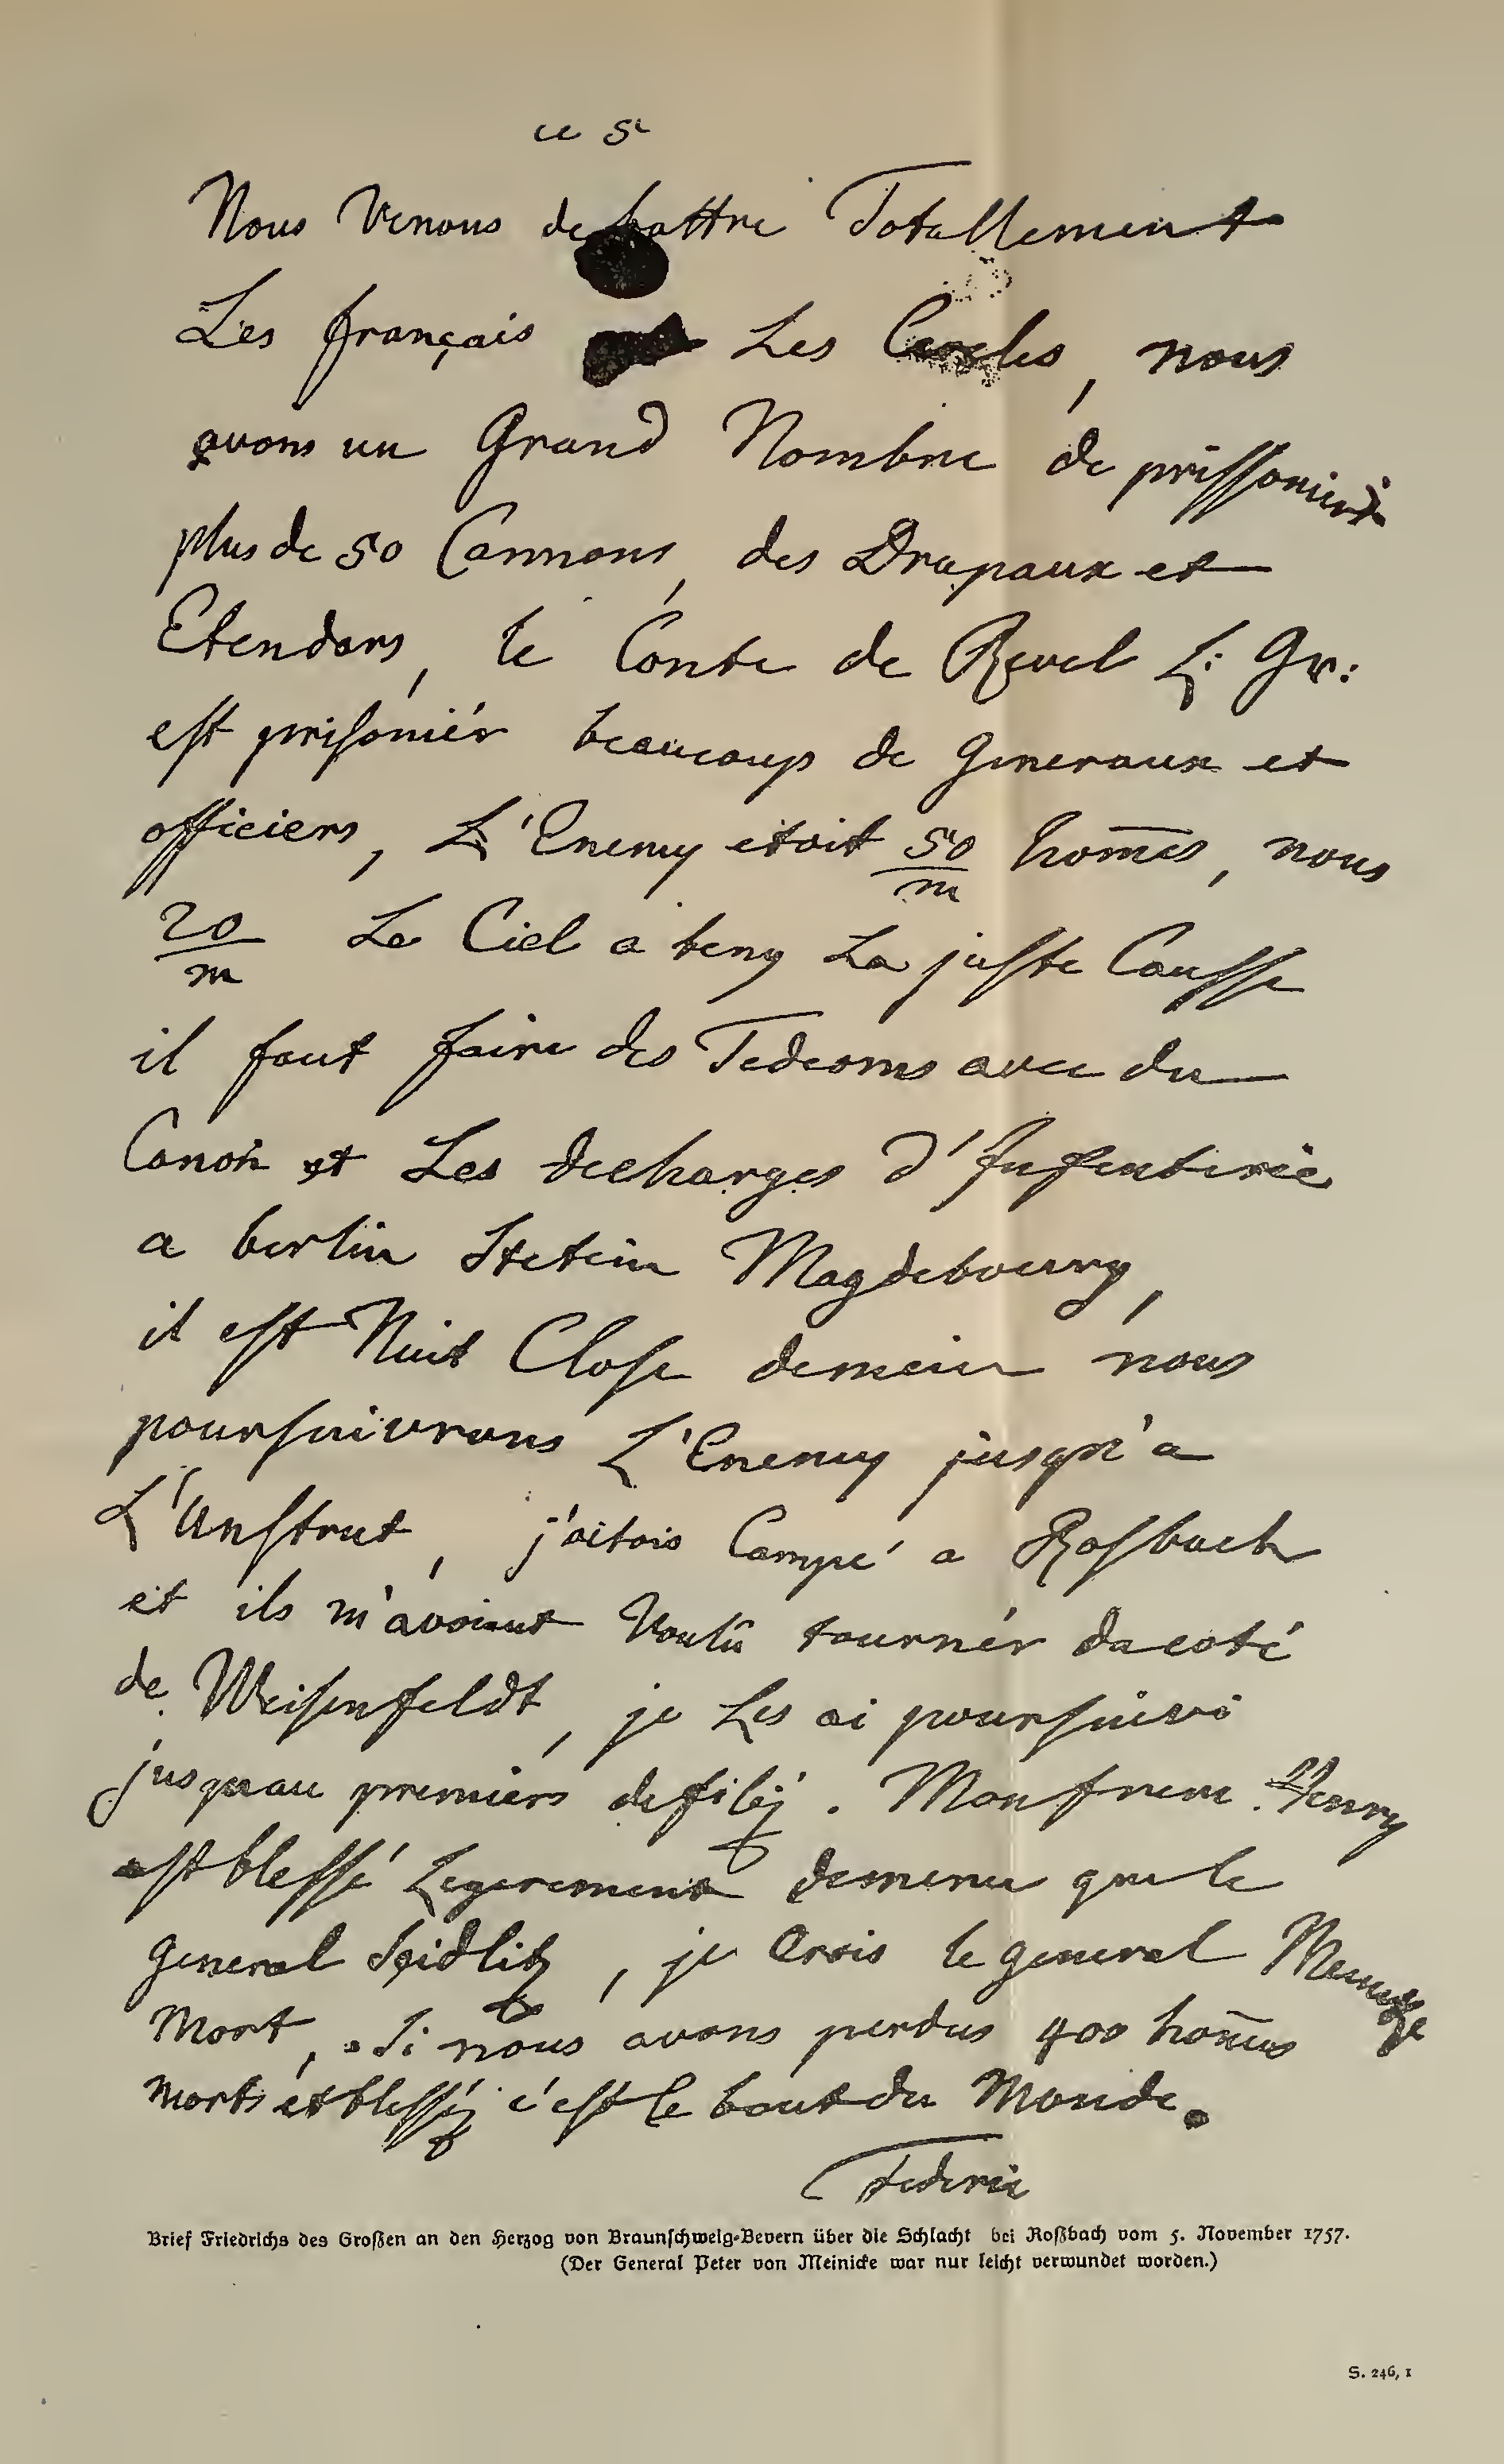 ce 5
Nous Venons de battre Totallement
Les français Les Cercles, nous
avons un Grand Nombre de prissoniers
plus de 50 Cannons, des Drapaux et
Etendars, le Conte de Revel L: Gr:
est prisoniér beaucoup de generaux et
officiers, L'Enemy etoit 50/m hom̅es, nous
20/m Le Ciel a beny La juste Causse
il faut faire des Tedeoms avec du
Canon et Les decharges d'Infanterie
a berlin Stetein Magdebourg,
il est Nuit Close demain nous
poursuivrons L'Enemy jusqu'a
L'Unstrut, j'aitois Campé a Rosbach
et ils m'avoient Voulû tournér du coté
de Weisenfeldt, je Les ai poursuivi
jusqu'au premiérs defiléz. Mon frere Henry
est blessé Legerement de meme que le
general Seidlitz, je Crois le general
Mort, Si nous avons perdus 400 hom̅es
morts et blesséz c'est le bout du Monde.
Federic
Brief Friedrichs des Großen an den Herzog von Braunschweig-Bevern über die Schlacht bei Roßbach vom 5. November 1757.
(Der General Peter von Meinicke war nur leicht verwundet worden.)
S. 246, 1